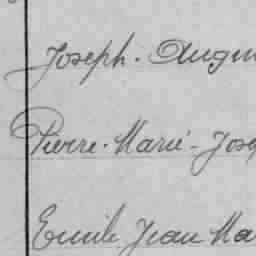 Joseph. Augu
Pierre. Marie - Jose
Emile Jean Ma